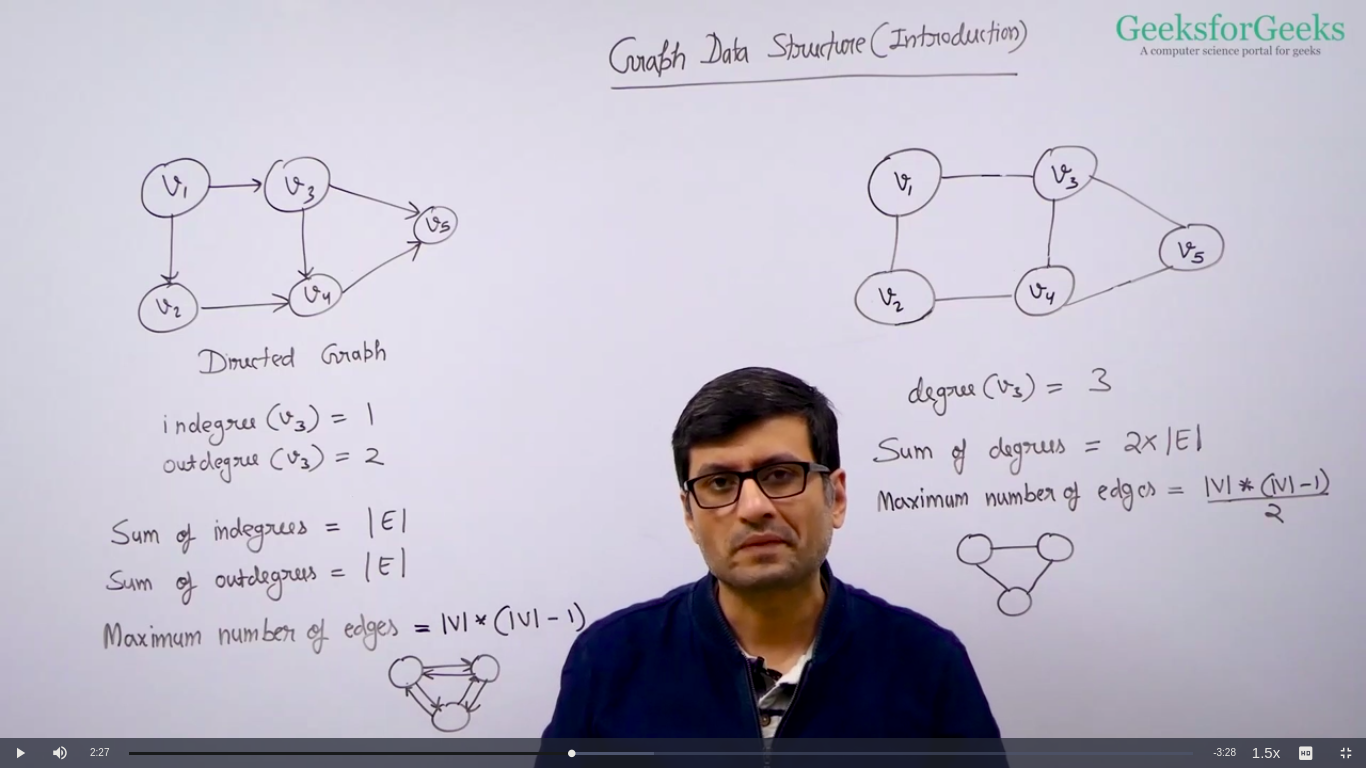 Graph Data Structure (Introduction)
GeeksforGeeks
A computer science portal for geeks
V1
V3
V5
V2
V4
Directed Graph
indegree (V3) = 1
outdegree (V3) = 2
Sum of indegrees = |E|
Sum of outdegrees = |E|
Maximum number of edges = |V| * (|V| - 1)
V1
V3
V5
V2
V4
degree (V3) = 3
Sum of degrees = 2x|E|
Maximum number of edges = |V| * (|V| - 1)
2
2:27
-3:28
1.5x
HD